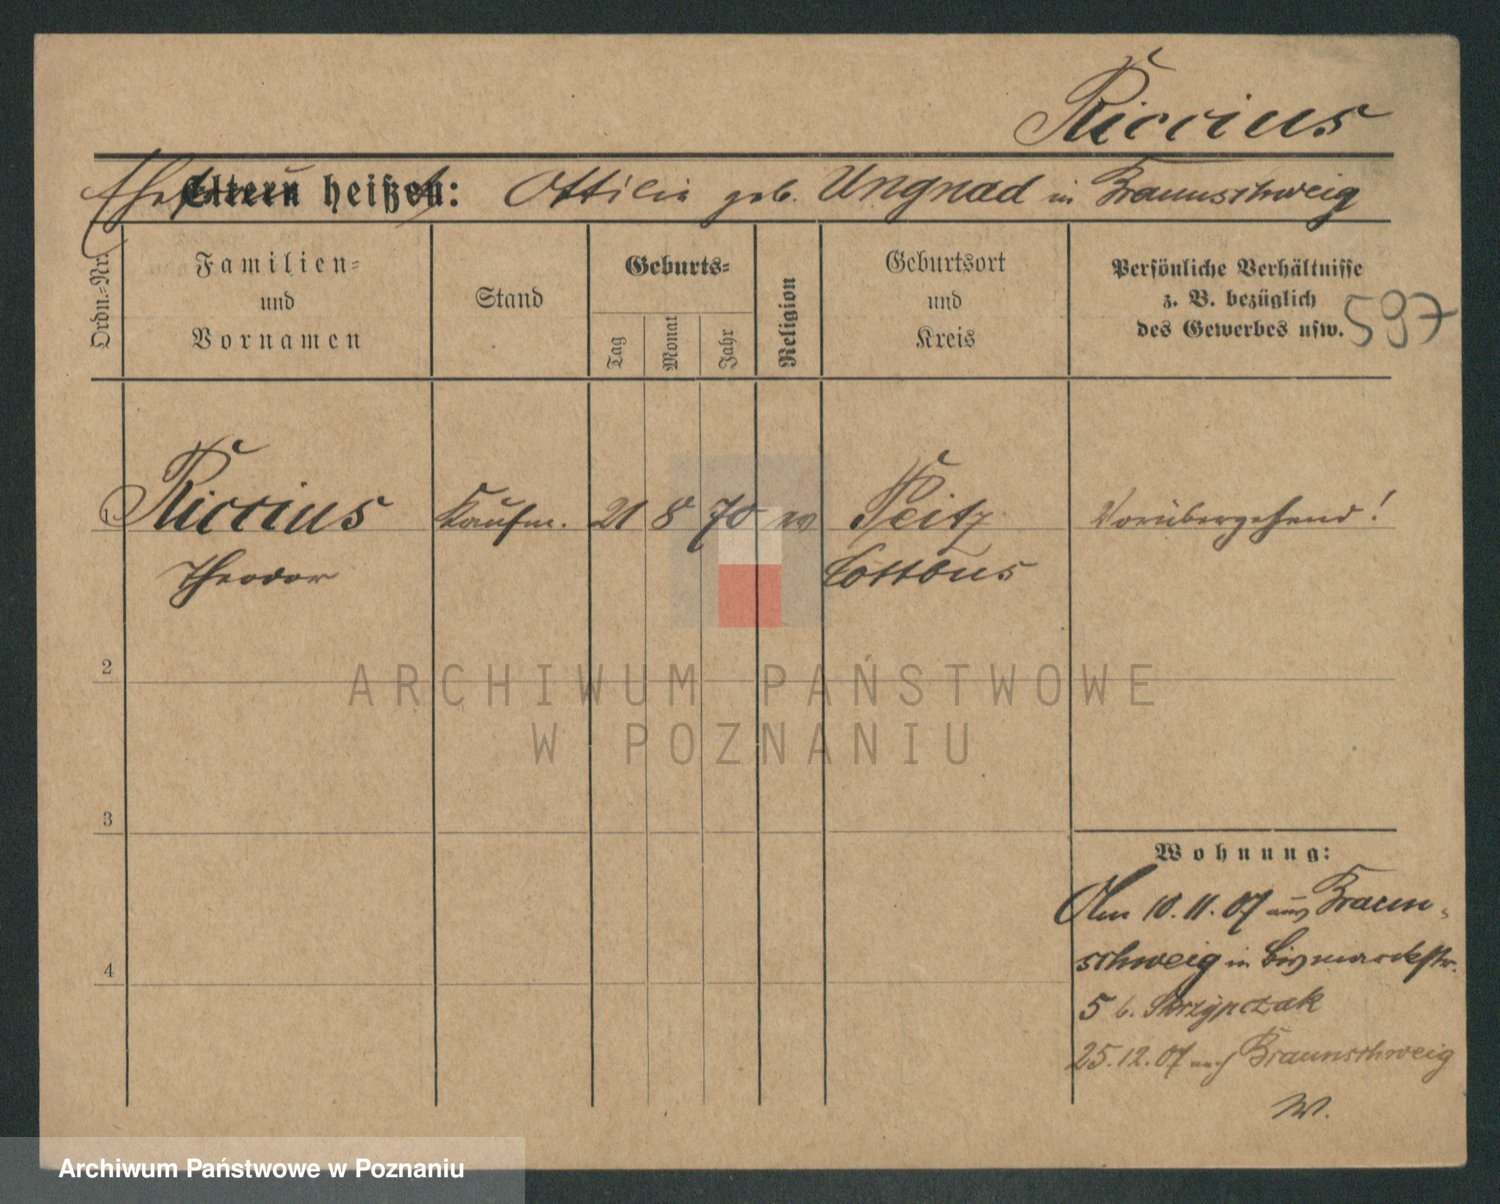 Riccius
Ehefrau
Eltern heißen: Ottilie geb. Ungnad in Braunschweig
Ordn.-Nr.
Familien-
und
Vornamen
Stand
Geburts-
Tag
Monat
Jahr
Religion
Geburtsort
und
Kreis
Persönliche Verhältnisse
z. B. bezüglich
des Gewerbes usw.
597
1 Riccius Kaufm. 21 8 70 ev Peitz Vorübergehend!
Theodor Cottbus
2
3
4
Wohnung:
Am 10.11.07 aus Braun-
schweig in Bismarckstr.
5 b. Skrzypczak
25.12.07 nach Braunschweig
W.
ARCHIWUM PAŃSTWOWE
W POZNANIU
Archiwum Państwowe w Poznaniu